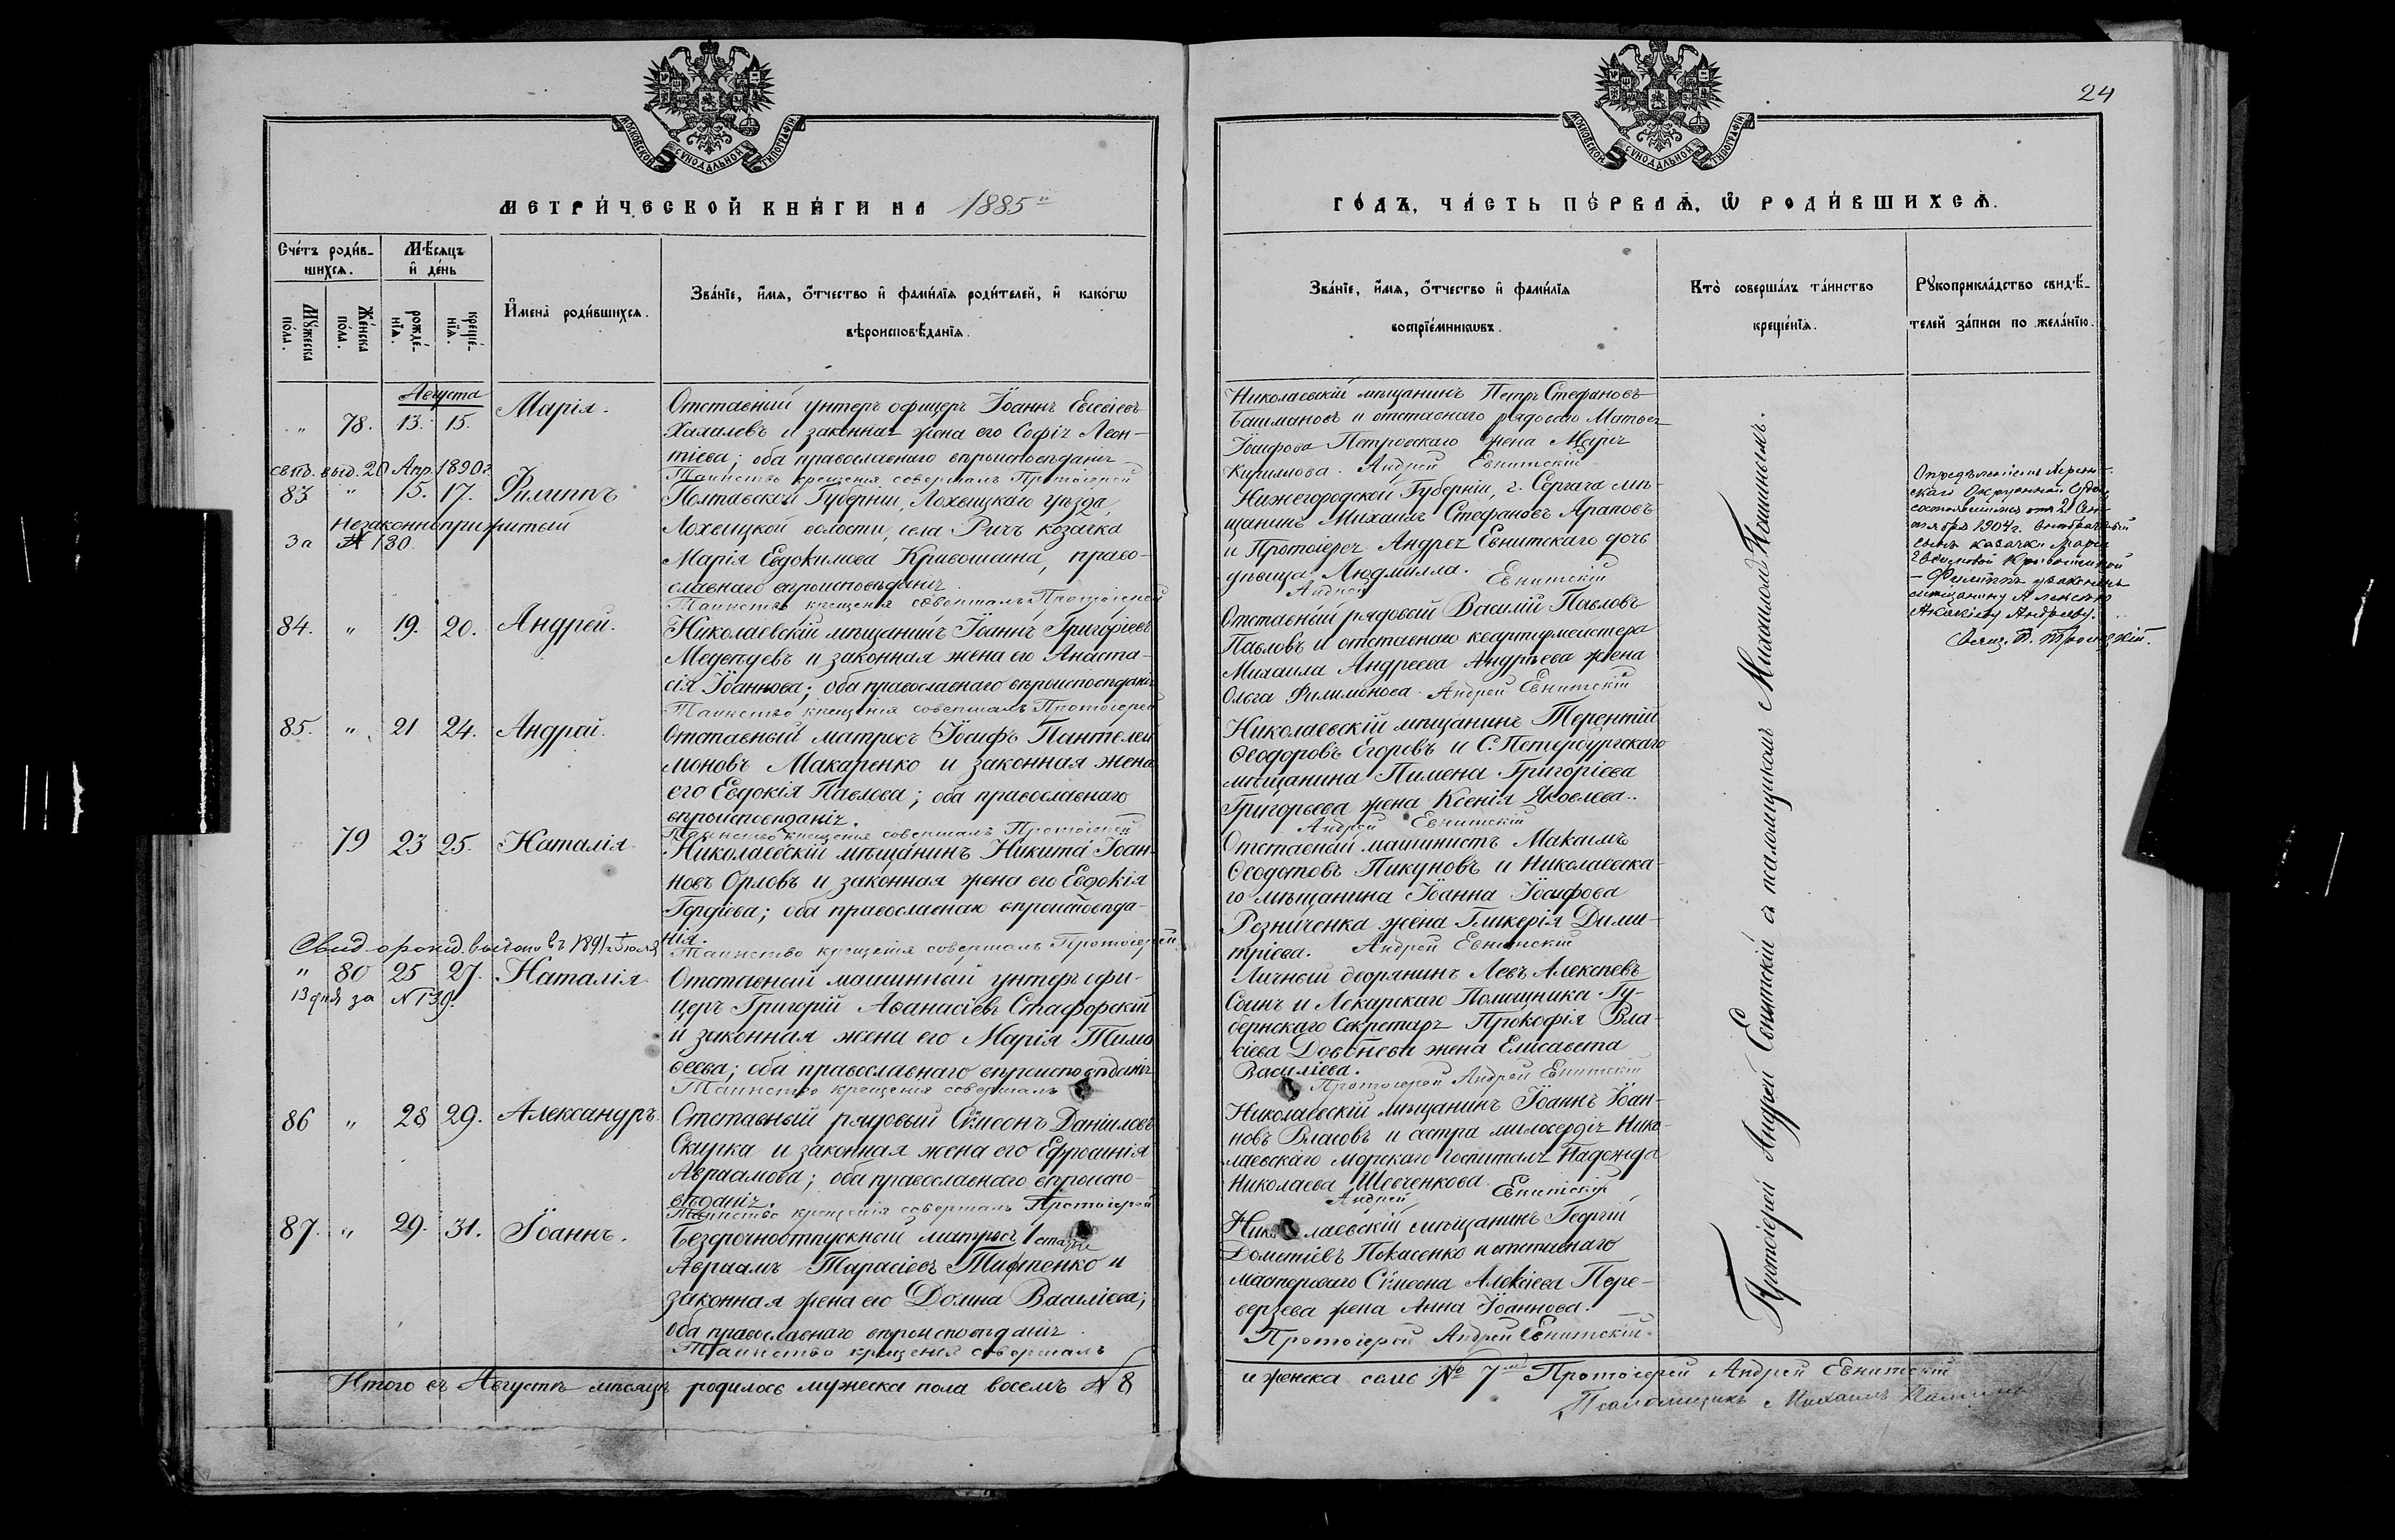 24
МОСКОВСКОЙ СУНОДАЛЬНОЙ ТИПОГРАФІИ
МОСКОВСКОЙ СУНОДАЛЬНОЙ ТИПОГРАФІИ
МЕТРИ́ЧЕСКОЙ КНИ́ГИ НА 1885
ГО́ДЪ, ЧА́СТЬ ПЕ́РВАѦ, Ѡ҆ РОДИ́ВШИХСѦ.
Сче́тъ роди́в-
шихсѧ.
Мѣ́сѧцъ
и҆ де́нь
Мꙋ́жеска
по́ла.
Же́нска
по́ла.
рожде́-
нїѧ.
креще́-
нїѧ.
И҆мена̀ роди́вшихсѧ.
Зва́нїе, и҆́мѧ, ѻ҆́тчество и҆ фами́лїѧ роди́телей, и҆ како́гѡ
вѣроисповѣ́данїѧ.
Зва́нїе, и҆́мѧ, ѻ҆́тчество и҆ фами́лїѧ
воспрїе́мникѡвъ.
Кто̀ соверша́лъ та́инство
креще́нїѧ.
Рꙋкоприкла́дство свидѣ́-
телей за́писи по жела́нїю.
Августа
" 78. 13. 15. Марія.
Отставный унтеръ офицеръ Іоаннъ Евсевіевъ
Хахалевъ и законная жена его Софія Леон-
тіева; оба православнаго вѣроисповѣданія
Таинство крещенія совершалъ Протоіерей
Николаевскій мѣщанинъ Петръ Стефановъ
Башмановъ и отставнаго рядоваго Матвея
Іосифова Петровскаго жена Марія
Кирилова. Андрей Евнитскій
свид. выд. 20 Апр. 1890 г.
83 " 15. 17. Филиппъ
Незаконноприжитый
За № 130.
Полтавской Губерніи, Лохвицкаго уѣзда,
Лохвицкой волости, села Ричъ козачка
Марія Евдокимова Кривошеина, право-
славнаго вѣроисповѣданія.
Таинство крещенія совершалъ Протоіерей
Нижегородской Губерніи, г. Сергача мѣ-
щанинъ Михаилъ Стефановъ Араповъ
и Протоіерея Андрея Евнитскаго дочь
дѣвица Людмилла.
Андрей Евнитскій
Опредѣленіемъ Херсон-
скаго Окружнаго Суда,
состоявшимся отъ 20 Сен-
тября 1904 г. внебрачный
сынъ казачки Маріи
Евдокимовой Кривошеиной
– Филиппъ узаконенъ
мѣщанину Алексѣю
Акакіеву Андрееву.
Свящ.
84. " 19. 20. Андрей.
Николаевскій мѣщанинъ Іоаннъ Григоріевъ
Медвѣдевъ и законная жена его Анаста-
сія Іоаннова; оба православнаго вѣроисповѣданія
Таинство крещенія совершалъ Протоіерей
Отставный рядовой Василій Павловъ
Павловъ и отставнаго квартирмейстера
Михаила Андреева Андреева жена
Ольга Филимонова. Андрей Евнитскій
85. " 21 24. Андрей.
Отставный матросъ Іосифъ Пантелей
моновъ Макаренко и законная жена
его Евдокія Павлова; оба православнаго
вѣроисповѣданія.
Таинство крещенія совершалъ Протоіерей
Николаевскій мѣщанинъ Терентій
Ѳеодоровъ Егоровъ и С. Петербургскаго
мѣщанина Пимена Григоріева
Григорьева жена Ксенія Яковлева.
Андрей Евнитскій
79 23 25. Наталія
Николаевскій мѣщанинъ Никита Іоан-
новъ Орловъ и законная жена его Евдокія
Гордіева; оба православнаго вѣроисповѣда-
нія.
Таинство крещенія совершалъ Протоіерей
Отставный машинистъ Максимъ
Ѳеодотовъ Пикуновъ и Николаевска-
го мѣщанина Іоанна Іосифова
Резниченка жена Гликерія Дими-
тріева. Андрей Евнитскій
Свид. о рожд. выдано въ 1891 г. Іюля
" 80 25 27. Наталія
13 дня за № 139.
Отставный машинный унтеръ офи-
церъ Григорій Аѳанасіевъ Стафорскій
и законная жена его Марія Тимо
ѳеева; оба православнаго вѣроисповѣданія
Таинство крещенія совершалъ
Личный дворянинъ Левъ Алексѣевъ
Соинъ и Лекарскаго Помощника Гу-
бернскаго Секретаря Прокофія Вла-
сіева жена Елисавета
Василіева.
Протоіерей Андрей Евнитскій
86 " 28 29. Александръ.
Отставный рядовый Сѵмеонъ Даниловъ
Скирка и законная жена его Ефросинія
Авраамова; оба православнаго вѣроиспо-
вѣданія.
Таинство крещенія совершалъ Протоіерей
Николаевскій мѣщанинъ Іоаннъ Іоан-
новъ Власовъ и сестра милосердія Нико-
лаевскаго морскаго госпиталя Надежда
Николаева Шевченкова
Андрей Евнитскій
87. " 29. 31. Іоаннъ.
Безсрочноотпускной матросъ 1 статьи
Авраамъ Тарасіевъ и
законная жена его Домна Василіева;
оба православнаго вѣроисповѣданія
Таинство крещенія совершалъ
Николаевскій мѣщанинъ Георгій
Дометіевъ Покасенко и отставнаго
мастероваго Сѵмеона Алексіева Пере-
верзева жена Анна Іоаннова.
Протоіерей Андрей Евнитскій
Протоіерей Андрей Евнитскій съ псаломщикомъ Михаиломъ
Итого въ Августѣ мѣсяцѣ родилось мужеска пола восемъ № 8
и женска семь № 7 Протоіерей Андрей Евнитскій
Псаломщикъ Михаилъ